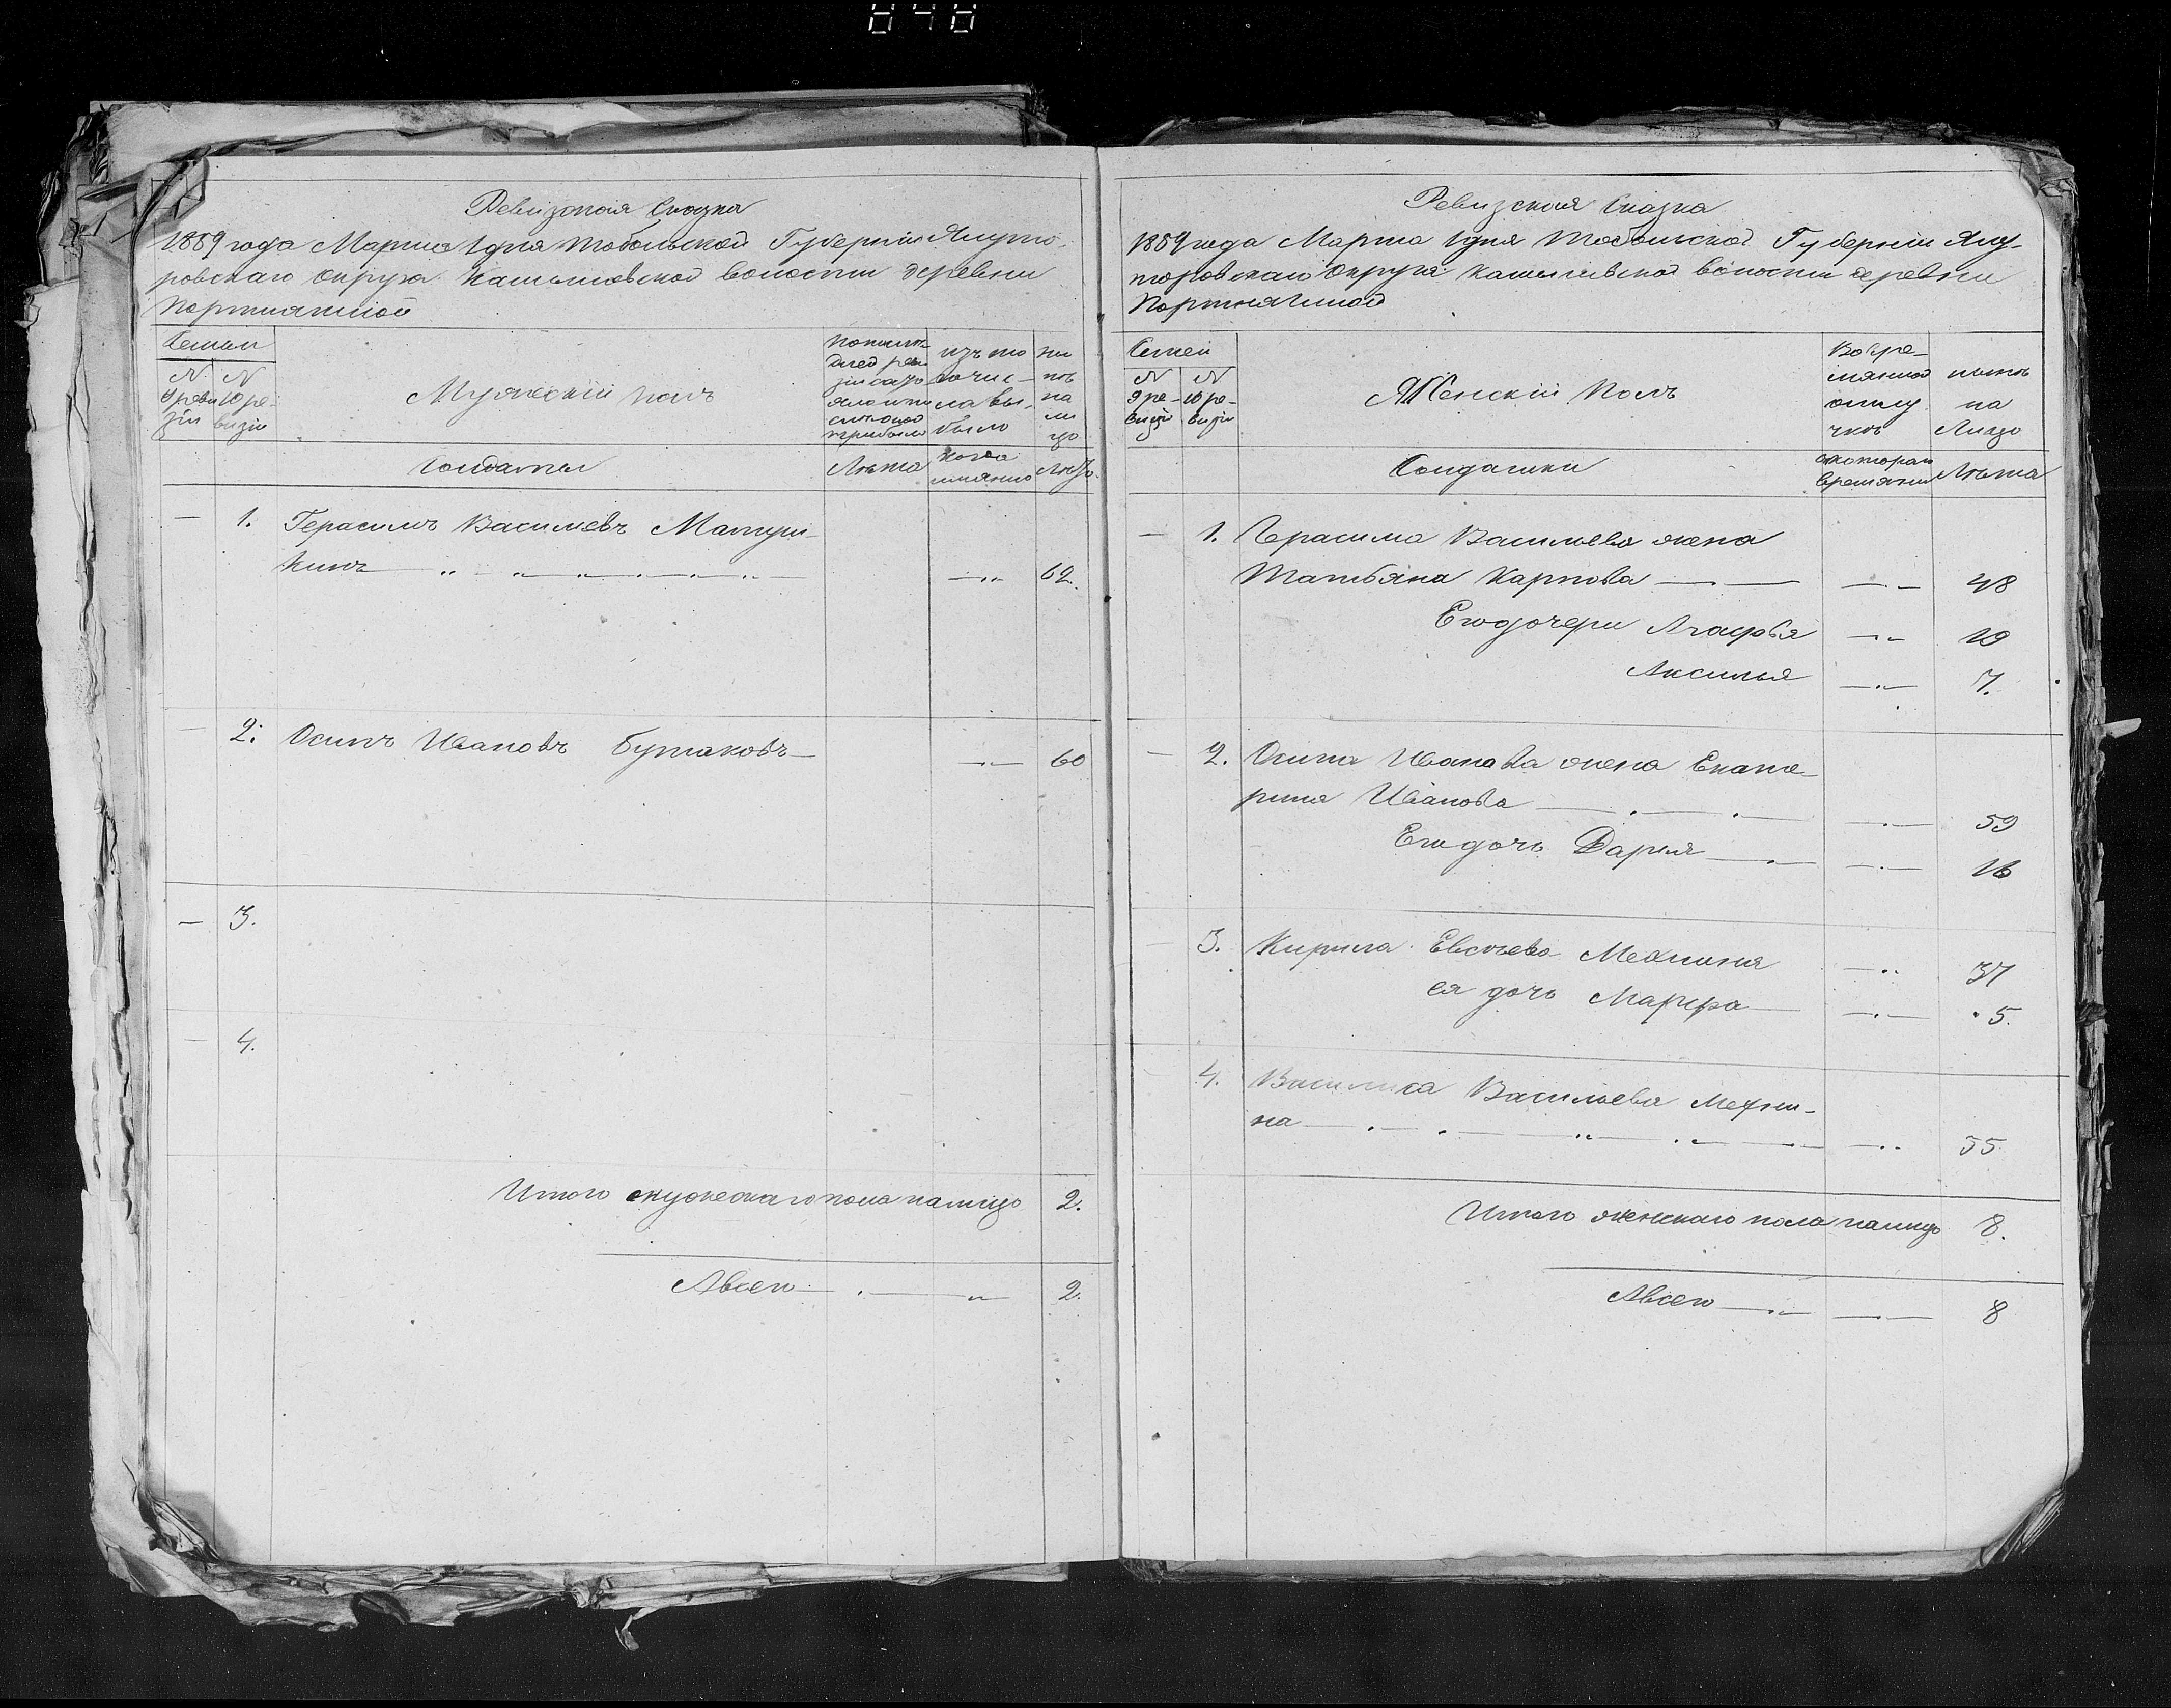 848
Ревизская Сказка
1859 года Марта 1 дня Тобольской Губернiи Ялуто-
ровскаго Округа Кашылювской волости деревни
Портнягиной
Семьи
N 9 ревизiи
N 10 ревизiи
Мужескiй полъ
изъ то
го чис-
ла вы-
было
ны
нѣ
на
ли
цо
Солдаты
Лѣта
когда
имянно
Лѣта
— 1. Герасимъ Васильевъ Матури-
кинъ 62.
— 2. Осипъ Ивановъ Бутаковъ — 60
— 3.
— 4.
Итого мужескаго пола налицо 2.
А всего 2.
Ревизская Сказка
1859 года Марта 1 дня Тобольской Губернiи Ялу-
торовскаго Округа Кашылювской волости деревни
Портнягиной
Семьи
N 9 ре-
визiи
N 10 ре-
визiи
Женскiй Полъ
Во вре-
мянной
отлу
чкѣ
нынѣ
на
Лицо
Солдатки
скотораго
времяни
Лѣта
— 1. Герасима Васильева жена
Татьяна Карпова 48
Его дочери Агафья 19
Аксинья 7.
— 2. Осипа Иванова жена Екате-
рина Иванова 59
Его дочь Дарья 16
3. Евсеева
ея дочь Марфа 5.
4. Василиса Васильева Мехни-
на 55
Итого женскаго пола налицо 8.
А всего 8